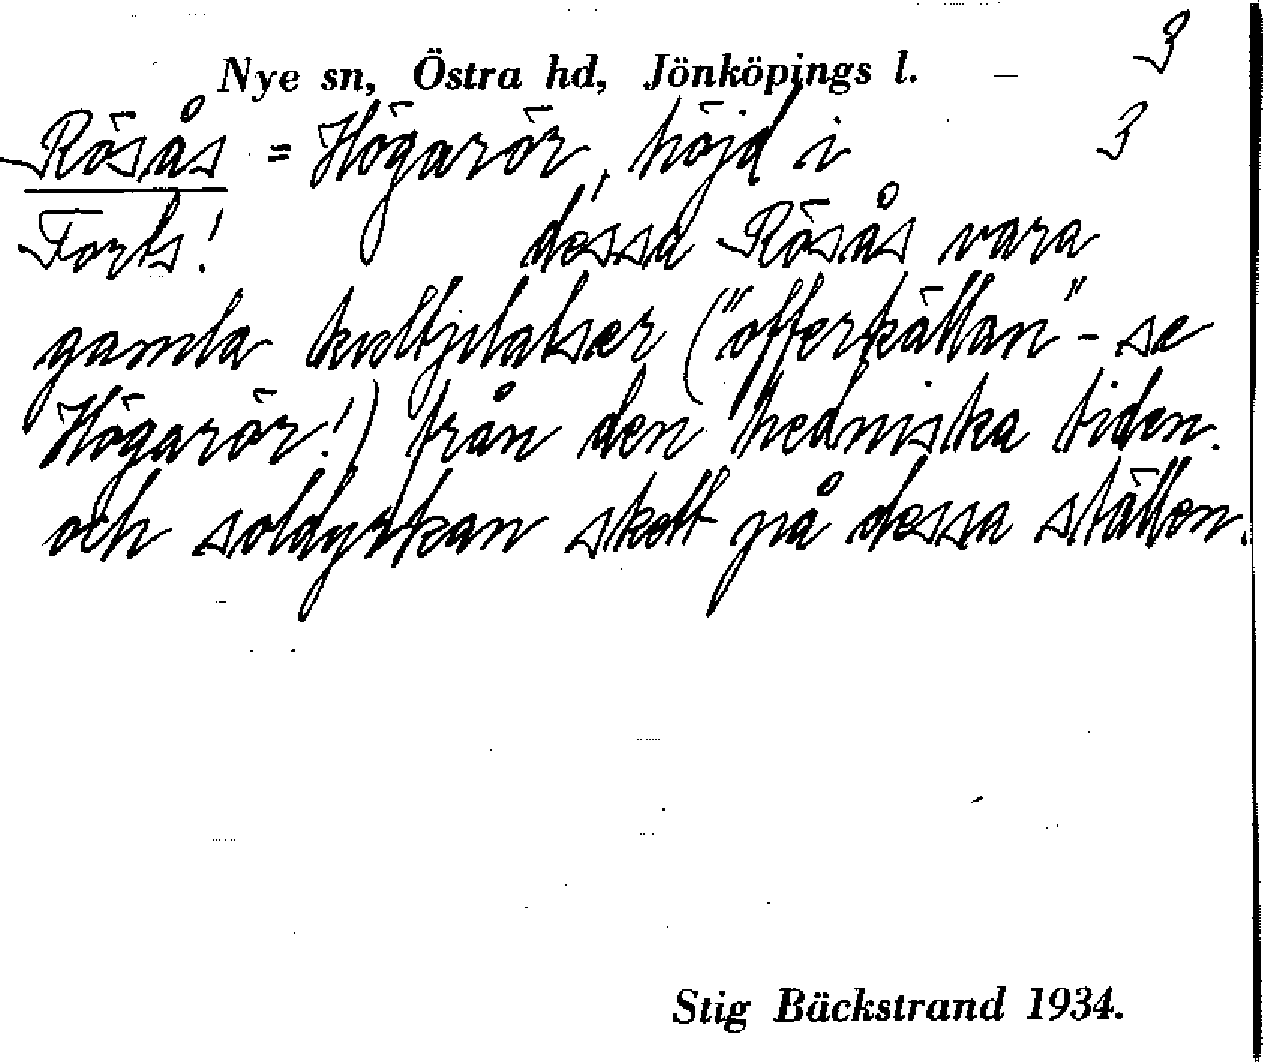 Nye sn, Östra hd, Jönköpings l. — 3
Rösås = Högarör, höjd i 3
Forts! dessa Rösås vara
gamla kultplatser ("offerkällan" - se
Högarör!) från den hedniska tiden.
och soldyrkan skett på dessa ställen.
Stig Bäckstrand 1934.